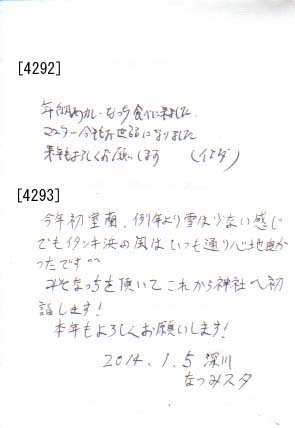 [4292]
年納めカレーなっち食べに来ました。
マスター今年もお世話になりました
来年もよろしくお願いします (イナダ)
[4293]
今年初室蘭、例年より雪は少ない感じ
でもイタンキ浜の風はいつも通り心地良か
ったです^^
みそなっちを頂いてこれから神社へ初
詣します!
本年もよろしくお願いします!
2014.1.5 深川
なつみスタ